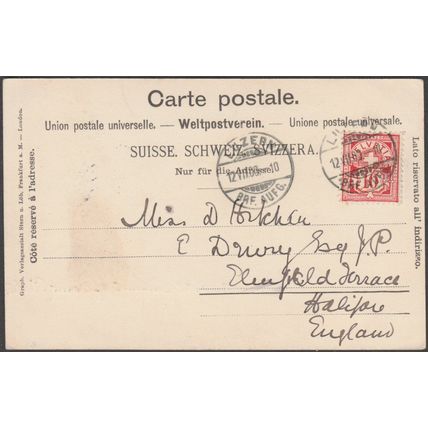 Carte postale.
Union postale universelle. — Weltpostverein. — Unione postale universale.
SUISSE. SCHWEIZ. SVIZZERA.
Nur für die Adresse.
LUZERN
12.VII.
10
BRF. AUFG.
LUZERN
12.VII.
BRF. AUFG.
HELVETIA
10
Miss D
E Drury Esq J.P.
Terrace
Halifax
England
Côté réservé à l'adresse.
Graph. Verlagsanstalt Stern u. Löb, Frankfurt a. M. — London.
Lato riservato all' indirizzo.